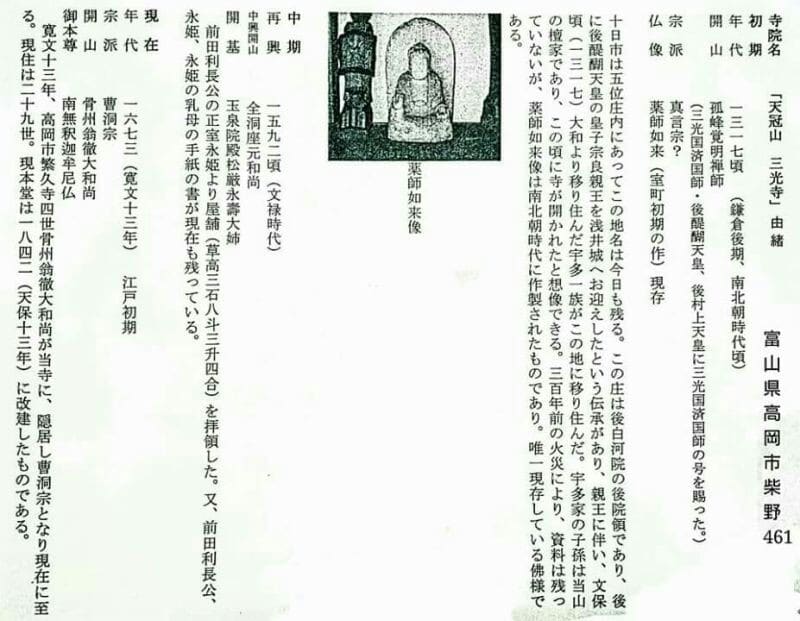 寺院名　「天冠山　三光寺」由緒
富山県高岡市柴野461
初期
年代　一三一七頃　（鎌倉後期、南北朝時代頃）
開山　孤峰覚明禅師
（三光国済国師・後醍醐天皇、後村上天皇に三光国済国師の号を賜った。）
宗派　真言宗？
仏像　薬師如来（室町初期の作）現存
十日市は五位庄内にあってこの地名は今日も残る。この庄は後白河院の後院領であり、後
に後醍醐天皇の皇子宗良親王を浅井城へお迎えしたという伝承があり、親王に伴い、文保
頃（一三一七）大和より移り住んだ宇多一族がこの地に移り住んだ。宇多家の子孫は当山
の檀家であり、この頃に寺が開かれたと想像できる。三百年前の火災により、資料は残っ
ていないが、薬師如来像は南北朝時代に作製されたものであり。唯一現存している佛様で
ある。
薬師如来像
中期
再興　一五九二頃（文禄時代）
中興開山　全洞座元和尚
開基　玉泉院殿松厳永壽大姉
前田利長公の正室永姫より屋舗（草高三石八斗三升四合）を拝領した。又、前田利長公、
永姫、永姫の乳母の手紙の書が現在も残っている。
現在
年代　一六七三（寛文十三年）　江戸初期
宗派　曹洞宗
開山　骨州翁徹大和尚
御本尊　南無釈迦牟尼仏
寛文十三年、高岡市繁久寺四世骨州翁徹大和尚が当寺に、隠居し曹洞宗となり現在に至
る。現住は二十九世。現本堂は一八四二（天保十三年）に改建したものである。